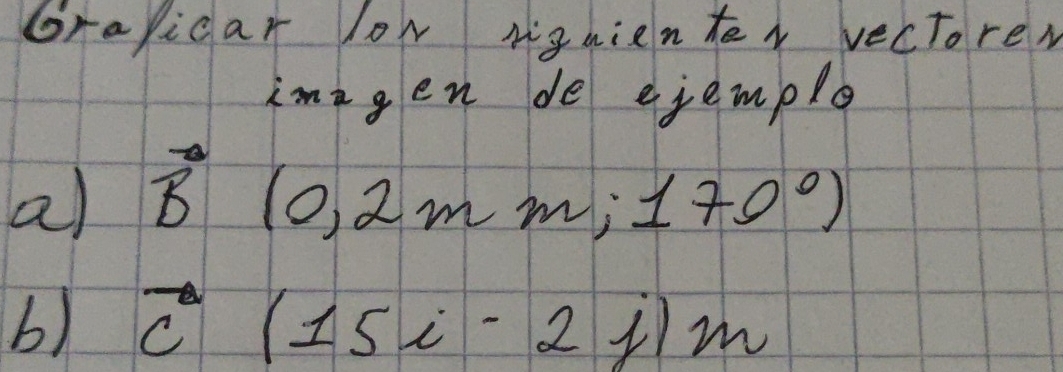 Graficar los siguientes vectores
imagen de ejemplo
a) B⃗ (0,2 mm; 170°)
b) C⃗ (15i - 2j) m